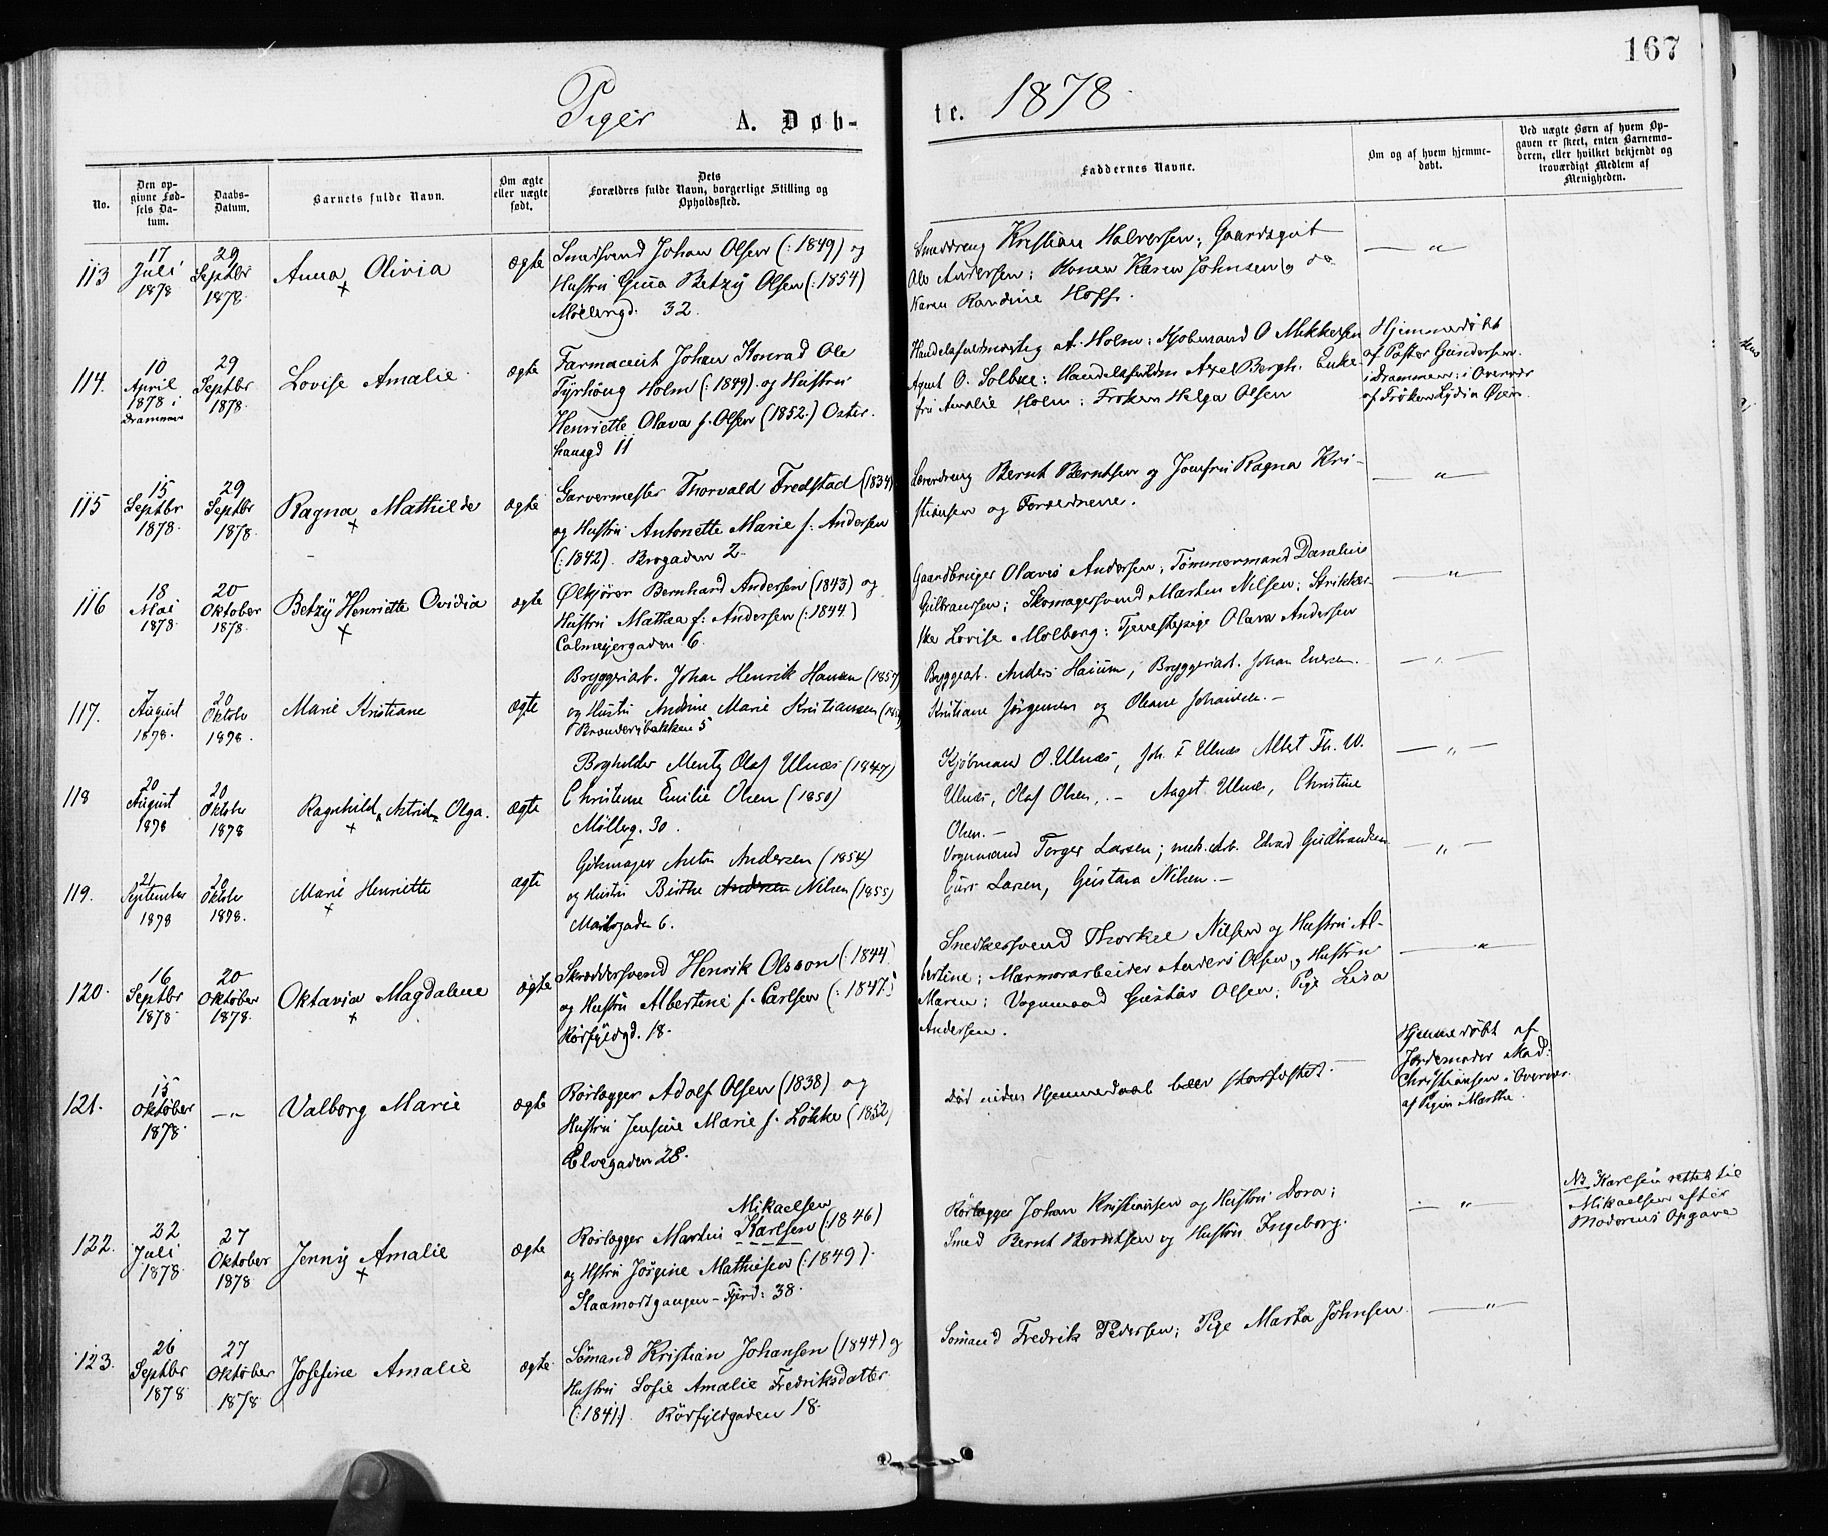 167
Piger A. Døb-
te. 1878.
No.
Den op-
givne Fød-
sels Da-
tum.
Daabs-
Datum.
Barnets fulde Navn.
Om ægte
eller uægte
født.
Dets
Forældres fulde Navn, borgerlige Stilling og
Opholdssted.
Faddernes Navne.
Om og af hvem hjemme-
døbt.
Ved uægte Børn af hvem Op-
gaven er skeet, enten Barnemo-
deren, eller hvilket bekjendt og
troværdigt Medlem af
Menigheden.
113
17
Juli
1878
29
Septbr
1878.
Anna Olivia
ægte
Smedsvend Johan Olsen (: 1849) og
Hustru Gina Betzy Olsen (: 1854)
Møllergd. 32.
Smeddreng Kristian Halversen; Gaardsgut
Ole Andersen; Konen Karen Johnsen og do
Karen Randine Hoff.
— " —
114.
10
April
1878 i
Drammen
29
Septbr
1878.
Lovise Amalie.
ægte
Farmaceut Johan Konrad Ole
Tyrhoug Holm (: 1849). og Hustru
Henriette Olava f. Olsen (1852.) Oster-
hausgd 11
A. Holm; Kjøbmand O Mikkelsen
Agent O. Solbue; Axel Bergh. Enke-
fru Amalie Holm; Frøken Helga Olsen
Hjemmedøbt
af Pastor Gundersen
i Drammen; i Overvær
af Frøken Lydia
115
15
Septbr
1878.
29
Septbr
1878.
Ragna Mathilde
ægte
Garvermester Thorvald Fredstad (1834)
og Hustru Antonette Marie f. Andersen
(: 1842). Brogaden 2.
Læredreng Bernt Berntsen og Jomfru Ragna Kri-
stiansen og Forældrene.
— " —
116
18
Mai
1878.
20
Oktober
1878.
Betzy Henriette Ovidia
ægte
Ølkjører Bernhard Andersen (1843) og
Hustru Mathea f: Andersen (: 1844.)
Calmeyergaden 6.
Gaardbruger Olaves Andersen; Tømmermand Danelius
Gulbransen; Skomagersvend Martin Nilsen; Strikker-
ske Lovise Molberg; Tjenestepige Olava Andersen
— " —
117.
7
August
1878.
20
Oktobr
1878.
Marie Kristiane
ægte
Bryggeriarb. Johan Henrik Hansen (1857)
og Hustru Andrine Marie Kristiansen
Brenneribakken 5
Bryggeat. Anders Hansen, Bryggeriarb. Johan
Kristiane Jørgensen og Oleane Johansen. —
— " —
118
20
August
1878
20
Oktobr
1878
Ragnhild Astrid Olga.
ægte
Boghelder Mentz Olaf Ulnæs (1847)
Christene Emilie Olsen (1850)
Møllerg. 30.
Kjøbmand O. Ulnæs, Joh. F Ulnæs Th. W.
Ulnæs, Olaf Olsen, — Aagot Ulnæs, Christine
Olsen. —
— " —
119.
21
September
1878
20
Oktobr
1878.
Marie Henriette
ægte
Anton Andersen (1854)
og Hustru Birthe Andersen Nilsen (1855)
6.
Vognmand Torger Larsen; mek. Arb. Edvard Gulbrandsen
Guri Larsen, Gustava Nilsen. —
— " —
120.
16
Septbr
1878.
20
Oktober
1878.
Oktavia Magdalene
ægte
Skræddersvend Henrik Olsson (: 1844)
og Hustru Albertine f. Carlsen (: 1847)
Rørfyldgd. 18.
Snedkersvend Thorkel Nilsen og Hustru Al-
bertine; Marmorarbeider Anders Olsen og Hustru
Maren; Vognmand Gustav Olsen; Pige Lisa
Andersen.
— " —
121.
15
Oktober
1878.
— " —
Valborg Marie
ægte
Rørlægger Adolf Olsen (1838) og
Hustru Jensine Marie f. Løkke (1852)
Elvegaden 28.
Død inden Hjemmedaab blev stadfæstet. —
Hjemmedøbt af
Jordemoder Mad.
Christiansen i Overvær
af Pigen Marthe.
122.
22
Juli
1878.
27
Oktober
1878.
Jenny Amalie
ægte
Mikaelsen
Rørlægger Martin Karlsen (: 1846)
og Hstru Jørgine Mathiesen (: 1849).
Slaamotgangen – Fjerd: 38.
Rørlægger Johan Kristiansen og Hustru Dora;
Smed Bernt Berntsen og Hustru Ingeborg.
— " —
NB Karlsen rettet til
Mikaelsen efter
Moderens Opgave
123.
26
Septbr
1878.
27
Oktober
1878.
Josefine Amalie
ægte.
Sømand Kristian Johansen (1844) og
Hustru Sofie Amalie Fredriksdatter
(: 1841). Rørfyldgaden 18.
Sømand Fredrik Pedersen; Pige Marta Johnsen.
— " —